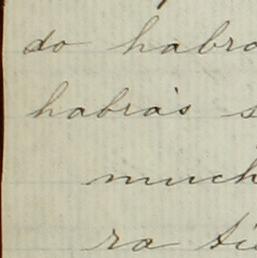 do habra
habrás s
much
ra ti